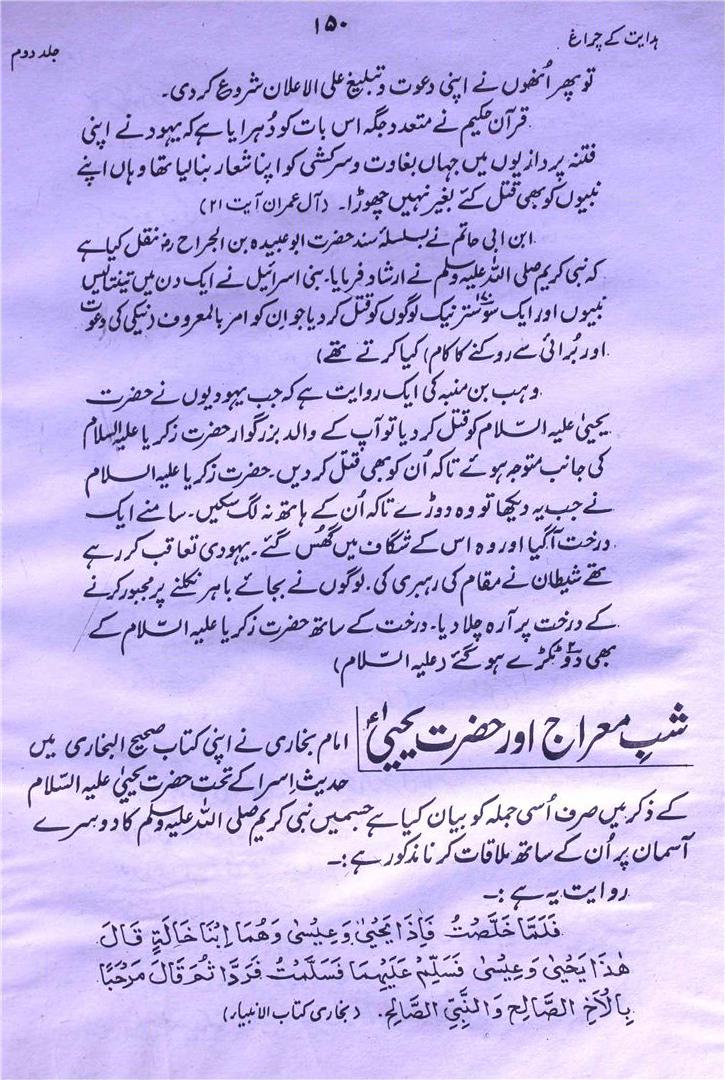 ہدایت کے چراغ
۱۵۰
جلد دوم
تو پھر اُنھوں نے اپنی دعوت و تبلیغ علی الاعلان شروع کر دی۔
قرآن حکیم نے متعدد جگہ اس بات کو دُہرایا ہے کہ یہود نے اپنی
فتنہ پردازیوں میں جہاں بغاوت و سرکشی کو اپنا شعار بنالیا تھا وہاں اپنے
نبیوں کو بھی قتل کئے بغیر نہیں چھوڑا۔ (آل عمران آیت ۲۱)
ابن ابی حاتم نے بسلسلۂ سند حضرت ابو عبیدہ بن الجراح رضؓ نقل کیا ہے
کہ نبی کریم صلی اللہ علیہ وسلم نے ارشاد فرمایا۔ بنی اسرائیل نے ایک دن میں تینتالیس
نبیوں اور ایک سو ستر ۱۷۰ نیک لوگوں کو قتل کر دیا جو اِن کو امر بالمعروف (نیکی کی دعوت
اور بُرائی سے روکنے کا کام) کیا کرتے تھے)
وہب بن منبہ کی ایک روایت ہے کہ جب یہودیوں نے حضرت
یحییٰ علیہ السّلام کو قتل کر دیا تو آپ کے والد بزرگوار حضرت زکریا علیہ السلام
کی جانب متوجہ ہوئے تاکہ اُن کو بھی قتل کر دیں۔ حضرت زکریا علیہ السلام
نے جب یہ دیکھا تو وہ دوڑے تاکہ اُن کے ہاتھ نہ لگ سکیں۔ سامنے ایک
درخت آگیا اور وہ اس کے شگاف میں گھُس گئے۔ یہودی تعاقب کر رہے
تھے شیطان نے مقام کی رہبری کی۔ لوگوں نے بجائے باہر نکلنے پر مجبور کرنے
کے درخت پر آرہ چلا دیا۔ درخت کے ساتھ حضرت زکریا علیہ السّلام کے
بھی دو ۲ ٹکڑے ہو گئے (علیہ السّلام)
شبِ معراج اور حضرت یحییٰؑ
امام بخاری نے اپنی کتاب صحیح البخاری میں
حدیث اِسرا کے تحت حضرت یحییٰ علیہ السّلام
کے ذکر میں صرف اُسی جملہ کو بیان کیا ہے جسمیں نبی کریم صلی اللہ علیہ وسلم کا دوسرے
آسمان پر اُن کے ساتھ ملاقات کرنا مذکور ہے:۔
روایت یہ ہے:۔
فَلَمَّا خَلَّصْتُ فَاِذَا یَحْییٰ وَ عِیْسٰی وَهُمَا اِبْنَا خَالَةٍ قَالَ
هٰذَا یَحْییٰ وَ عِیْسٰی فَسَلِّمْ عَلَیْهِمَا فَسَلَّمْتُ فَرَدَّا ثُمَّ قَالَ مَرْحَبًا
بِالْاَخِ الصَّالِحِ وَالنَّبِیِّ الصَّالِحِ. (بخاری کتاب الانبیاء)